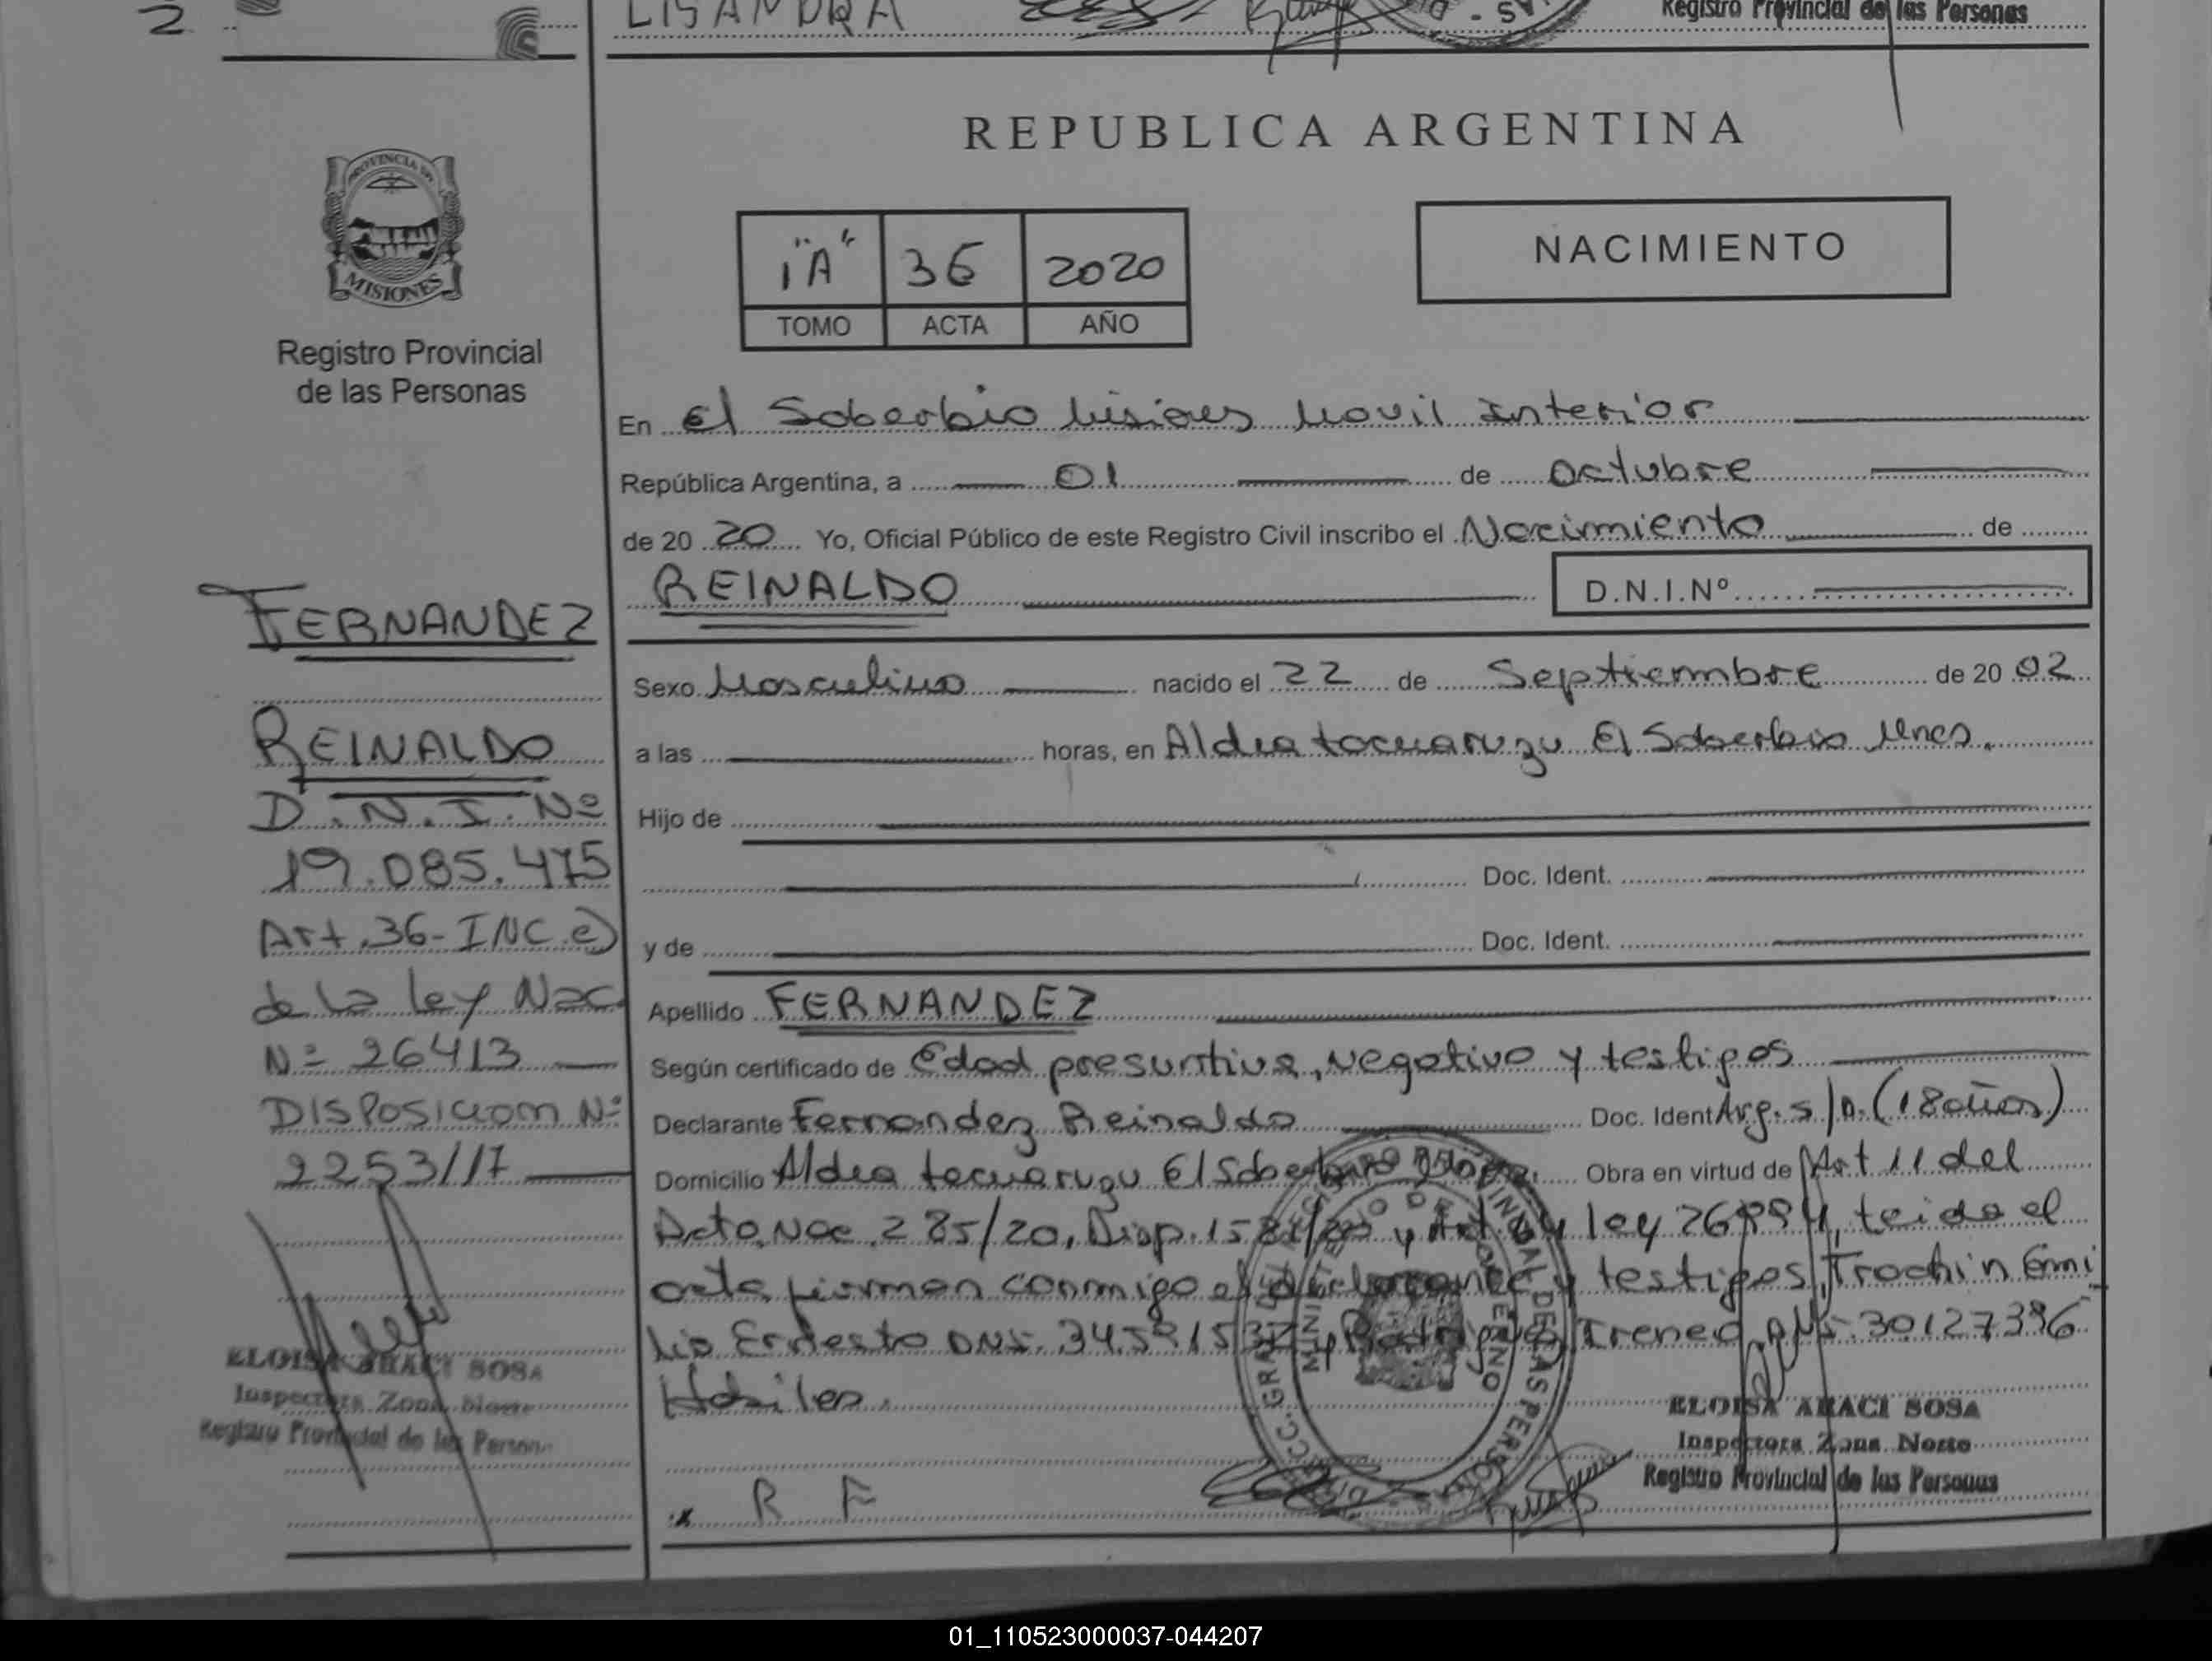 2
LISANDRA
Registro Provincial de las Personas
REPUBLICA ARGENTINA
PROVINCIA DE
MISIONES
Registro Provincial
de las Personas
"A" 36 2020
TOMO ACTA AÑO
NACIMIENTO
En El Soberbio Misiones Movil Interior
República Argentina, a 01 de octubre
de 20 20 Yo, Oficial Público de este Registro Civil inscribo el Nacimiento de
REINALDO D.N.I.Nº
Sexo Masculino nacido el 22 de Septiembre de 20 02
a las horas, en Aldea tacuaruzu El Soberbio Mnes.
Hijo de
Doc. Ident.
y de Doc. Ident.
Apellido FERNANDEZ
Según certificado de Edad presuntiva, negativo y testigos
Declarante Fernandez Reinaldo Doc. Ident Arg. s/D. (18 años)
Domicilio Aldea tacuaruzu El Soberbio Obra en virtud de Art 11 del
Dcto. Nac. 285/20, Disp. y Art. ley leida el
acta firman conmigo el declarante y testigos, Trochin Emi
lio Ernesto DNI. y Rodriguez Ireneo DNI. 30127396
Habiles.
x R F
FERNANDEZ
REINALDO
D.N.I. Nº
19.085.475
Art. 36- INC. e)
de la ley Nac.
Nº 26413
DISPOSICION Nº
2253/17
ELOISA ARACI SOSA
Inspectora Zona Norte
Registro Provincial de las Personas
ELOISA ARACI SOSA
Inspectora Zona Norte
Registro Provincial de las Personas
01_110523000037-044207